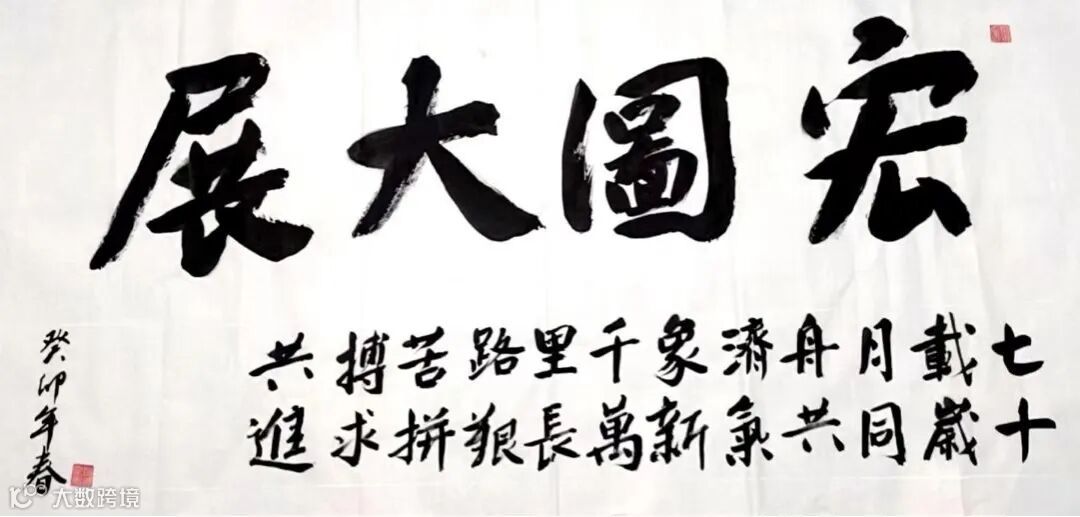 宏圖大展
七十
載歲
月同
舟共
濟氣
象新
千萬
里長
路艱
苦拼
搏求
共進
癸卯年春
大数跨境